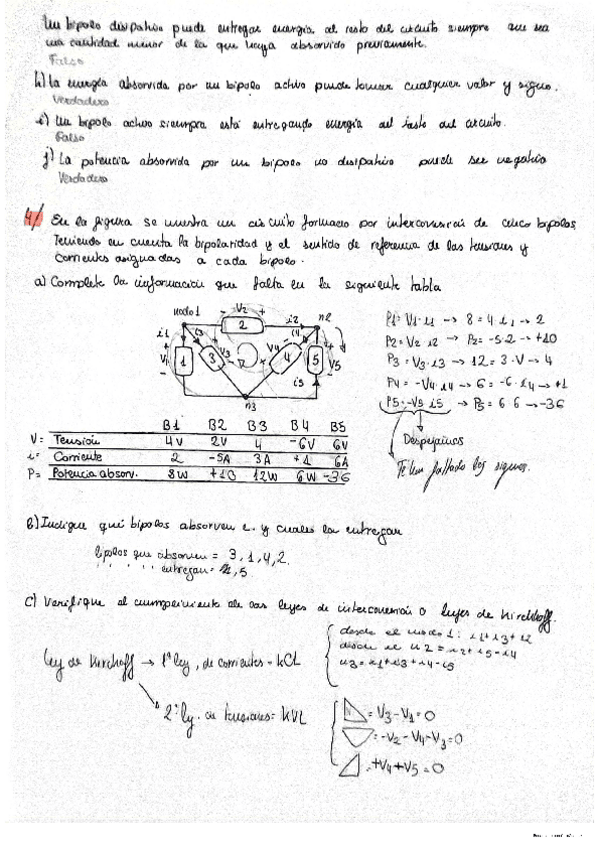 Un bipolo disipativo puede entregar energía al resto del circuito siempre que sea
una cantidad menor de la que haya absorvido previamente.
Falso
h) La energía absorvida por un bipolo activo puede tomar cualquier valor y signo.
Verdadero
i) Un bipolo activo siempre está entregando energía al resto del circuito.
Falso
j) La potencia absorvida por un bipolo no disipativo puede ser negativa
Verdadero
4/ En la figura se muestra un circuito formado por interconexión de cinco bipolos,
Teniendo en cuenta la bipolaridad y el sentido de referencia de las tensiones y
Corrientes asignadas a cada bipolo.
a) Complete la información que falta en la siguiente tabla
nodo 1 - V2 + 2 i2 n2
i1 + V1 - 1 i3 3 V3 V4 4 i4 5 + V5 - i5
n3
P1 = V1·i1 → 8 = 4 i1 → 2
P2 = V2 i2 → P2 = -5·2 → +10
P3 = V3·i3 → 12 = 3·V → 4
P4 = -V4·i4 → 6 = -6·i4 → +1
P5 = -V5 i5 → P5 = 6·6 → -36
Despejamos
Te han faltado los signos.
B1 B2 B3 B4 B5
V = Tensión 4V 2V 4 -6V 6V
i = Corriente 2 -5A 3A +1 6A
P = Potencia absorv. 8W +10 12W 6W -36
b) Indique qué bipolos absorven e. y cuales la entregan
bipolos que absorven = 3, 1, 4, 2.
" " " entregan = 5.
c) Verifique el cumplimiento de las leyes de interconexión o leyes de Kirchhoff.
ley de Kirchhoff → 1ª ley, de corrientes = KCL
desde el nodo 1: i1+i3+i2
desde el n2 = i2+i5-i4
n3 = i1+i3+i4-i5
2ª ley. de tensiones = KVL
= V3 - V1 = 0
= -V2 - V4 - V3 = 0
= +V4 + V5 = 0